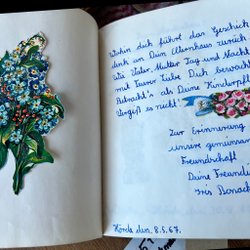 Wohin dich führt das Geschick
denk an Dein Elternhaus zurück
Wie Vater, Mutter Tag und Nacht
mit treuer Liebe Dich bewacht
Betracht's als Deine Kinderpflicht
Vergiß es nicht!
Zur Erinnerung
unsere gemeinsame
Freundschaft!
Deine Freundin
Iris
Hörde, den 8.5.67.